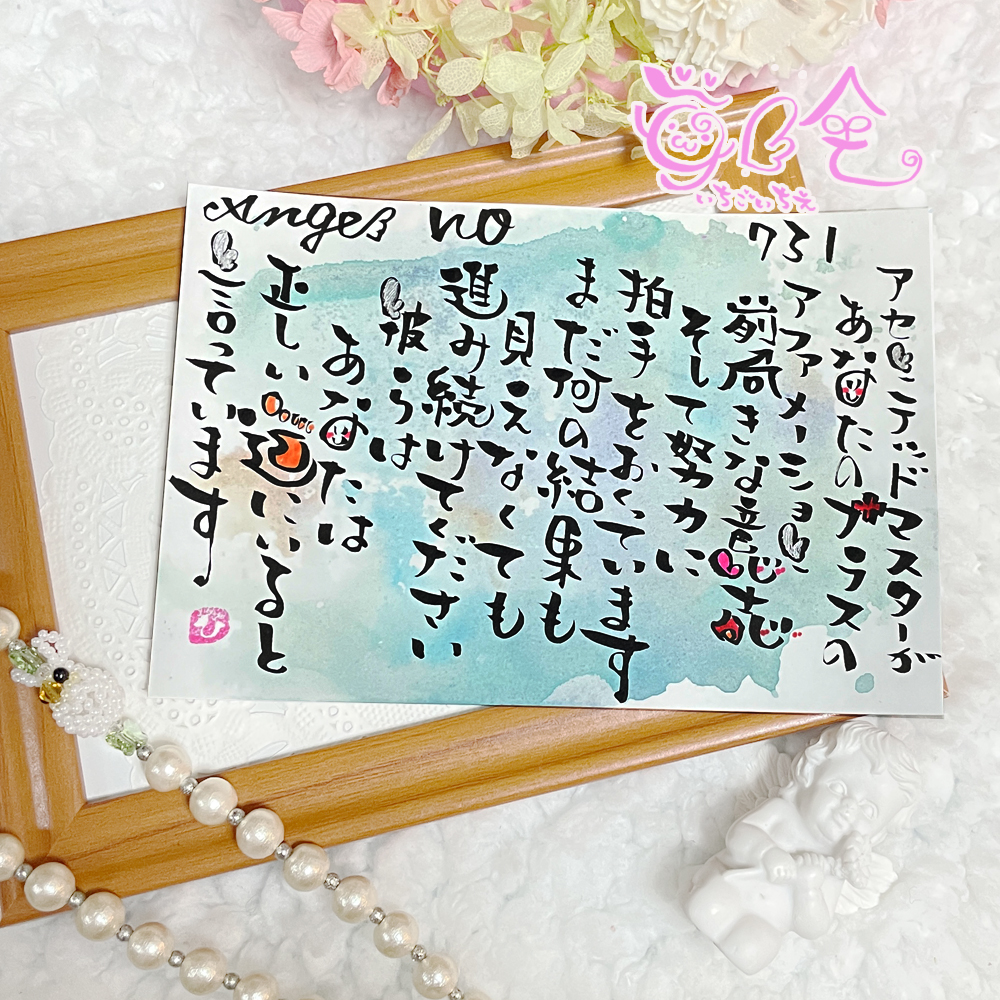 Angel no
731
アセンテッドマスターが
あなたのプラスの
アファメーション
前向きな意志
そして努力に
拍手をおくっています
まだ何の結果も
見えなくても
進み続けてください
彼らは
あなたは
正しい道にいると
言っています
いちごいちえ